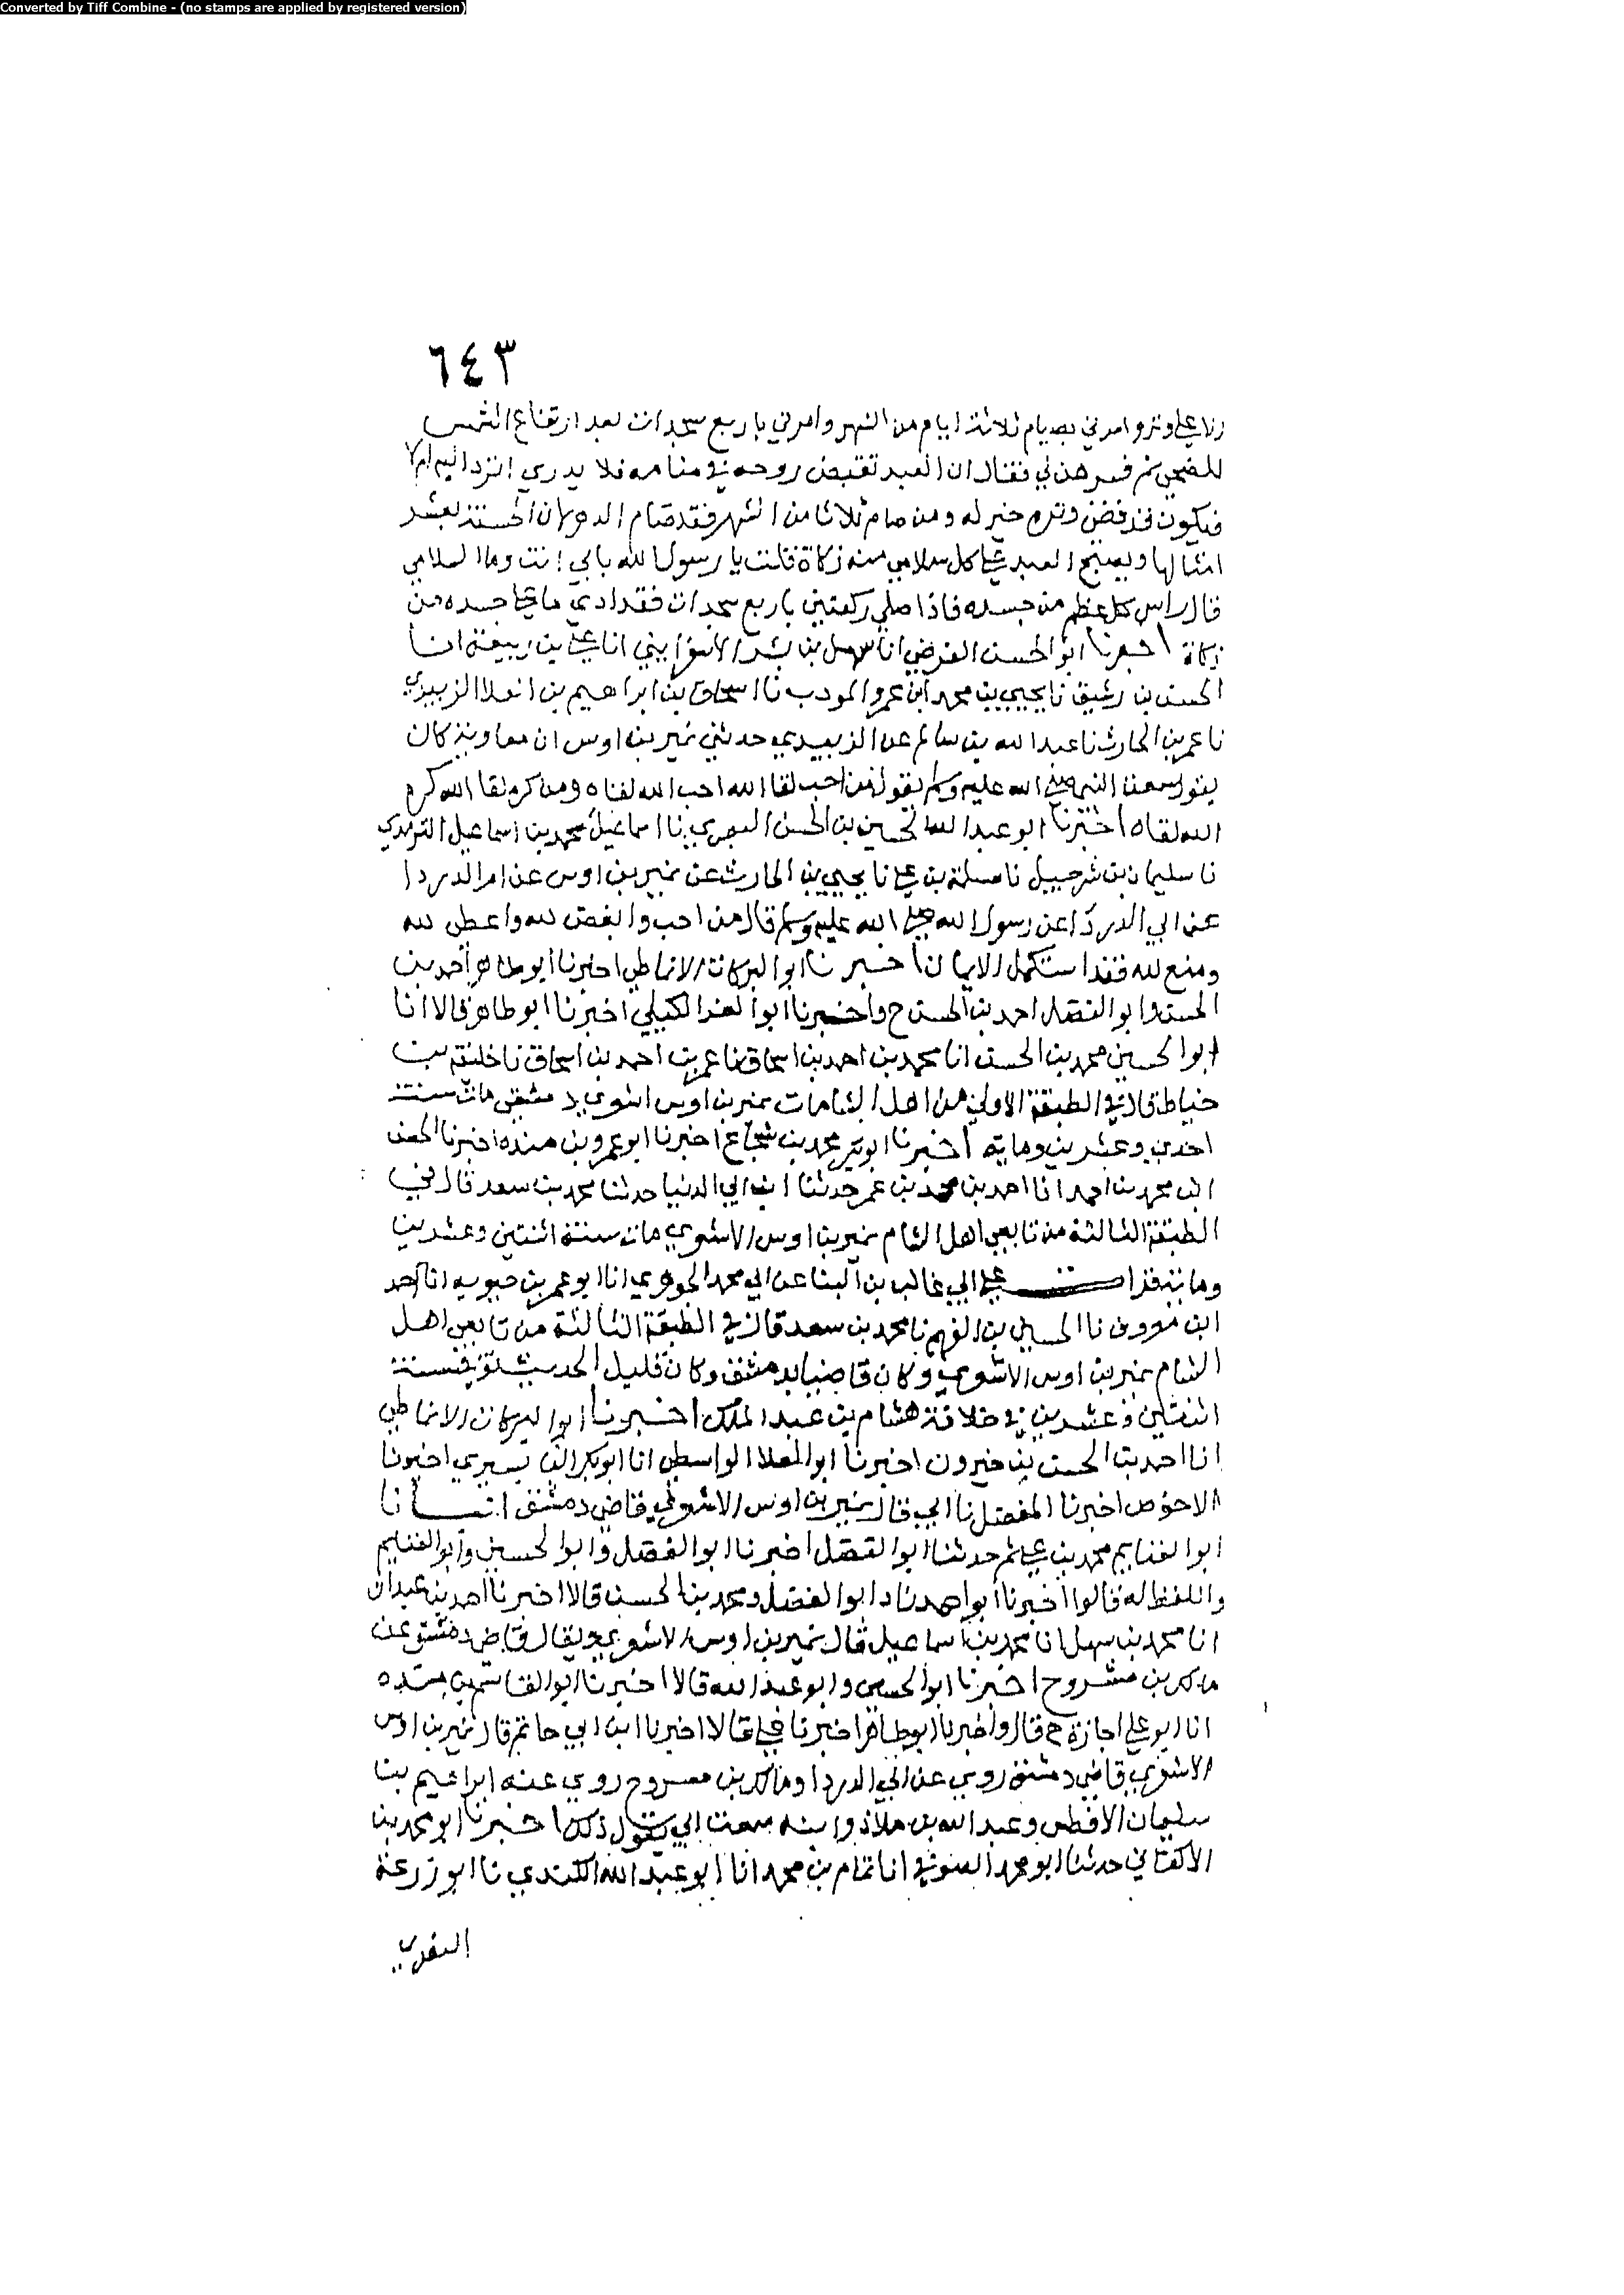 Converted by Tiff Combine - (no stamps are applied by registered version)
٦٤٣
انا على وتر وامرني بصيام ثلاثة ايام من الشهر وامرني باربع سجدات بعد ارتفاع الشمس
للضحى ثم فسرهن لي فقال ان العبد تقبض روحه في منامه فلا يدري اترد اليه ام لا
فيكون قد قضى وتره خير له ومن صام ثلاثا من الشهر فقد صام الدهر لان الحسنة بعشر
امثالها ويصبح العبد على كل سلامي منه زكاة قلت يا رسول الله بابي انت وما السلامي
قال راس كل عظم من جسده فاذا صلى ركعتين باربع سجدات فقد ادى ما على جسده من
زكاة اخبرنا ابو الحسن الفرضي انا سهل بن بشر الاسفرايني انا علي بن ربيعة انا
الحسن بن رشيق نا يحيى بن محمد ابن عمرو المودب نا اسحاق بن ابراهيم بن العلا الزبيدي
نا عمرو بن الحارث نا عبد الله بن سالم عن الزبيدي حدثني نمير بن اوس ان معاوية كان
يقول سمعت النبي صلى الله عليه وسلم يقول من احب لقا الله احب الله لقاه ومن كره لقا الله كره
الله لقاه اخبرنا ابو عبد الله الحسين بن الحسن البصري نا اسماعيل محمد بن اسماعيل الترمذي
نا سليمان بن شرحبيل نا مسلمة بن علي نا يحيى بن الحارث عن نمير بن اوس عن ام الدردا
عن ابي الدردا عن رسول الله صلى الله عليه وسلم قال من احب وابغض لله واعطى لله
ومنع لله فقد استكمل الايمان اخبرنا ابو البركات الانماطي اخبرنا ابو طاهر احمد بن
الحسن وابو الفضل احمد بن الحسن ح واخبرنا ابو العز الكيلي اخبرنا ابو طاهر قالا انا
ابو الحسين محمد بن الحسن انا محمد بن احمد بن اسحاق نا عمر بن احمد بن اسحاق نا خليفة بن
خياط قال في الطبقة الاولى من اهل الشامات نمير بن اوس اشعري دمشقي مات سنة
احدى وعشرين ومايه اخبرنا ابو بكر محمد بن شجاع اخبرنا ابو عمرو بن منده اخبرنا الحسن
ابن محمد بن احمد انا احمد بن محمد بن عمر حدثنا ابن ابي الدنيا حدثنا محمد بن سعد قال في
الطبقة الثالثة من تابعي اهل الشام نمير بن اوس الاشعري مات سنة اثنتين وعشرين
وماية قرات على ابي غالب بن البنا عن ابي محمد الجوهري انا ابو عمر بن حيويه انا احمد
ابن معروف نا الحسين بن الفهم نا محمد بن سعد قال في الطبقة الثالثة من تابعي اهل
الشام نمير بن اوس الاشعري وكان قاضيا بدمشق وكان قليل الحديث توفي سنة
اثنتين وعشرين في خلافة هشام بن عبد الملك اخبرنا ابو البركات الانماطي
انا احمد بن الحسن بن خيرون اخبرنا ابو العلا الواسطي انا ابو بكر البابسيري اخبرنا
الاحوص اخبرنا المفضل نا ابي قال نمير بن اوس الاشعري قاضي دمشق انبانا
ابو الغنايم محمد بن علي ثم حدثنا ابو الفضل اخبرنا ابو الفضل وابو الحسين وابو الغنايم
واللفظ له قالوا اخبرنا ابو احمد زاد ابو الفضل ومحمد بن الحسن قالا اخبرنا احمد بن عبدان
انا محمد بن سهل انا محمد بن اسماعيل قال نمير بن اوس الاشعري يقال قاضي دمشق عن
مالك بن مشروح اخبرنا ابو الحسين وابو عبد الله قالا اخبرنا ابو القاسم بن منده
انا ابو علي اجازة ح قال واخبرنا ابو طاهر اخبرنا علي قالا اخبرنا ابن ابي حاتم قال نمير بن اوس
الاشعري قاضي دمشق روى عن ابي الدردا ومالك بن مسروح روى عنه ابراهيم بن
سليمان الافطس وعبد الله بن ملاذ وابنه سمعت ابي يقول ذلك اخبرنا ابو محمد بن
الاكفاني حدثنا ابو محمد الصوفي انا تمام بن محمد انا ابو عبد الله الكندي نا ابو زرعة